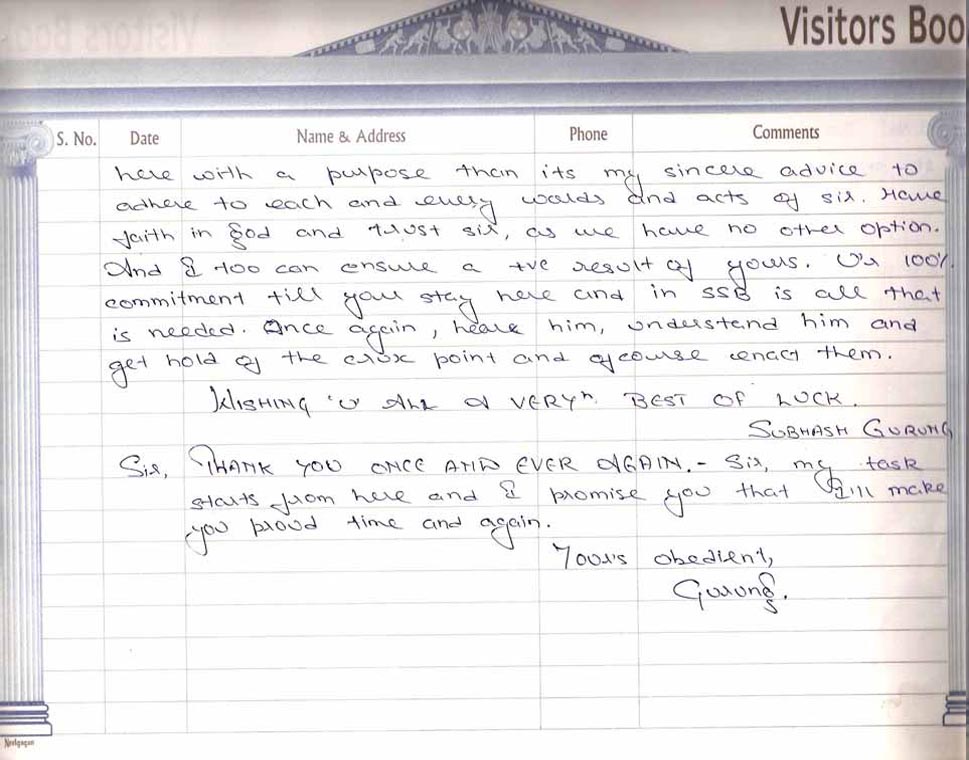 Visitors Boo
S. No. Date Name & Address Phone Comments
here with a purpose then its my sincere advice to
adhere to each and every words and acts of sir. Have
faith in God and trust sir, as we have no other option.
And I too can ensure a +ve result of yours. Ur 100%
commitment till your stay here and in SSB is all that
is needed. Once again, hear him, understand him and
get hold of the crux point and ofcourse enact them.
WISHING 'U' ALL A VERYn BEST OF LUCK.
SUBHASH GURUNG
Sir, THANK YOU ONCE AND EVER AGAIN. - Sir, my task
starts from here and I promise you that I'll make
you proud time and again.
Your's obedient,
Gurung.
Neelgagan